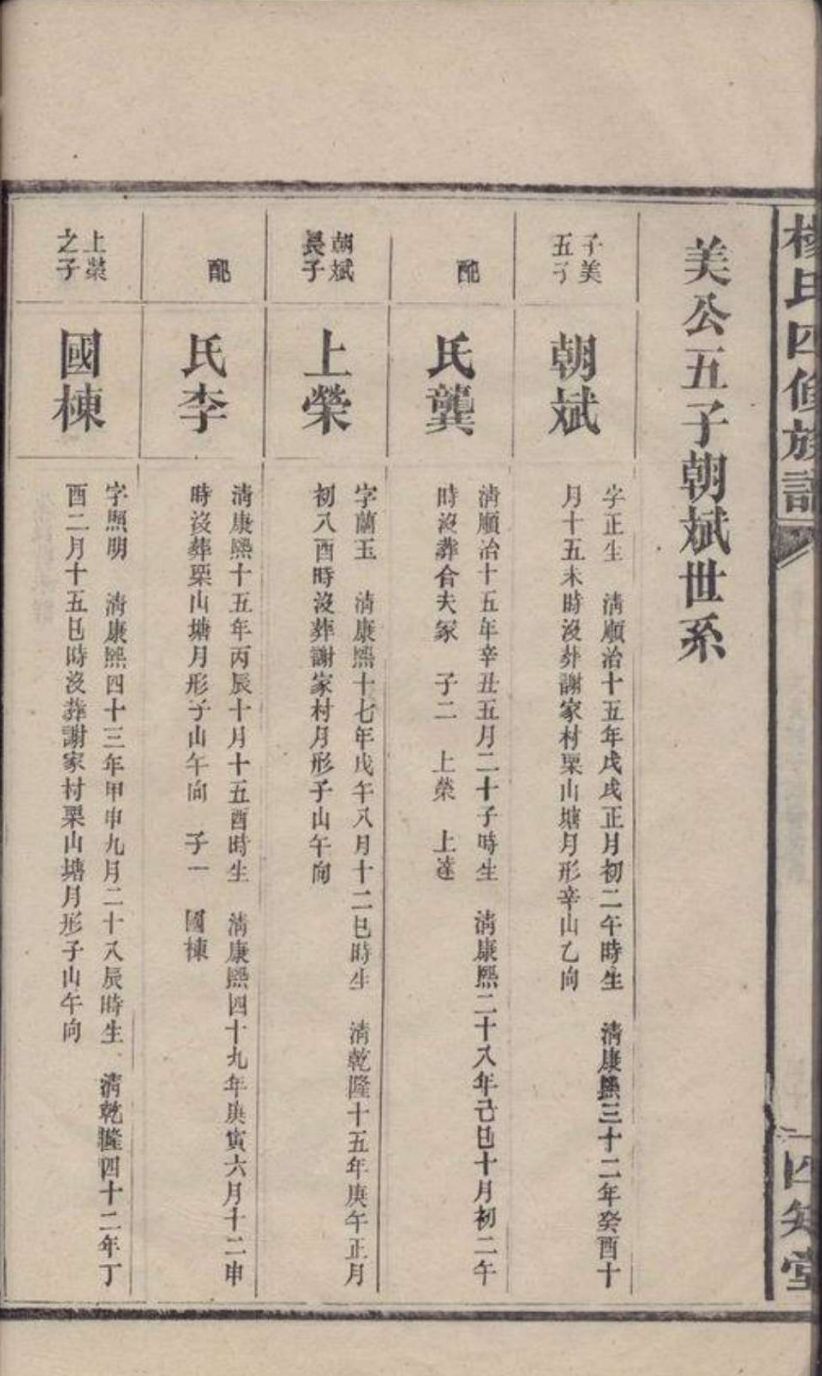 楊氏四修族譜
四知堂
美公五子朝斌世系
子美
五子
朝斌
字正生　清順治十五年戊戌正月初二午時生　清康熙三十二年癸酉十
月十五未時沒葬謝家村栗山塘月形辛山乙向
配
氏龔
清順治十五年辛丑五月二十子時生　清康熙二十八年己巳十月初二午
時沒葬合夫冢　子二　上榮　上達
朝斌
長子
上榮
字蘭玉　清康熙十七年戊午八月十二巳時生　清乾隆十五年庚午正月
初八酉時沒葬謝家村月形子山午向
配
氏李
清康熙十五年丙辰十月十五酉時生　清康熙四十九年庚寅六月十二申
時沒葬栗山塘月形子山午向　子一　國棟
上榮
之子
國棟
字照明　清康熙四十三年甲申九月二十八辰時生　清乾隆四十二年丁
酉二月十五巳時沒葬謝家村栗山塘月形子山午向